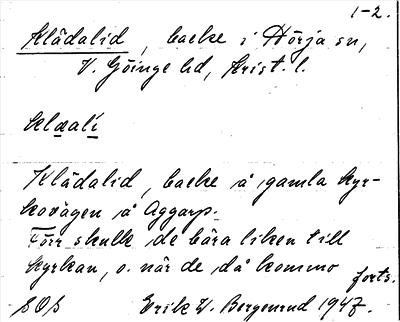 1-2.
Klådalid, backe i Hörja sn,
V. Göinge hd, Krist. l.
klɑalí
Klådalid, backe å gamla kyr-
kovägen å Aggarp.
Förr skulle de bära liken till
kyrkan, o. när de då kommo
forts.
SOS Erik W. Bergenrud 1947.